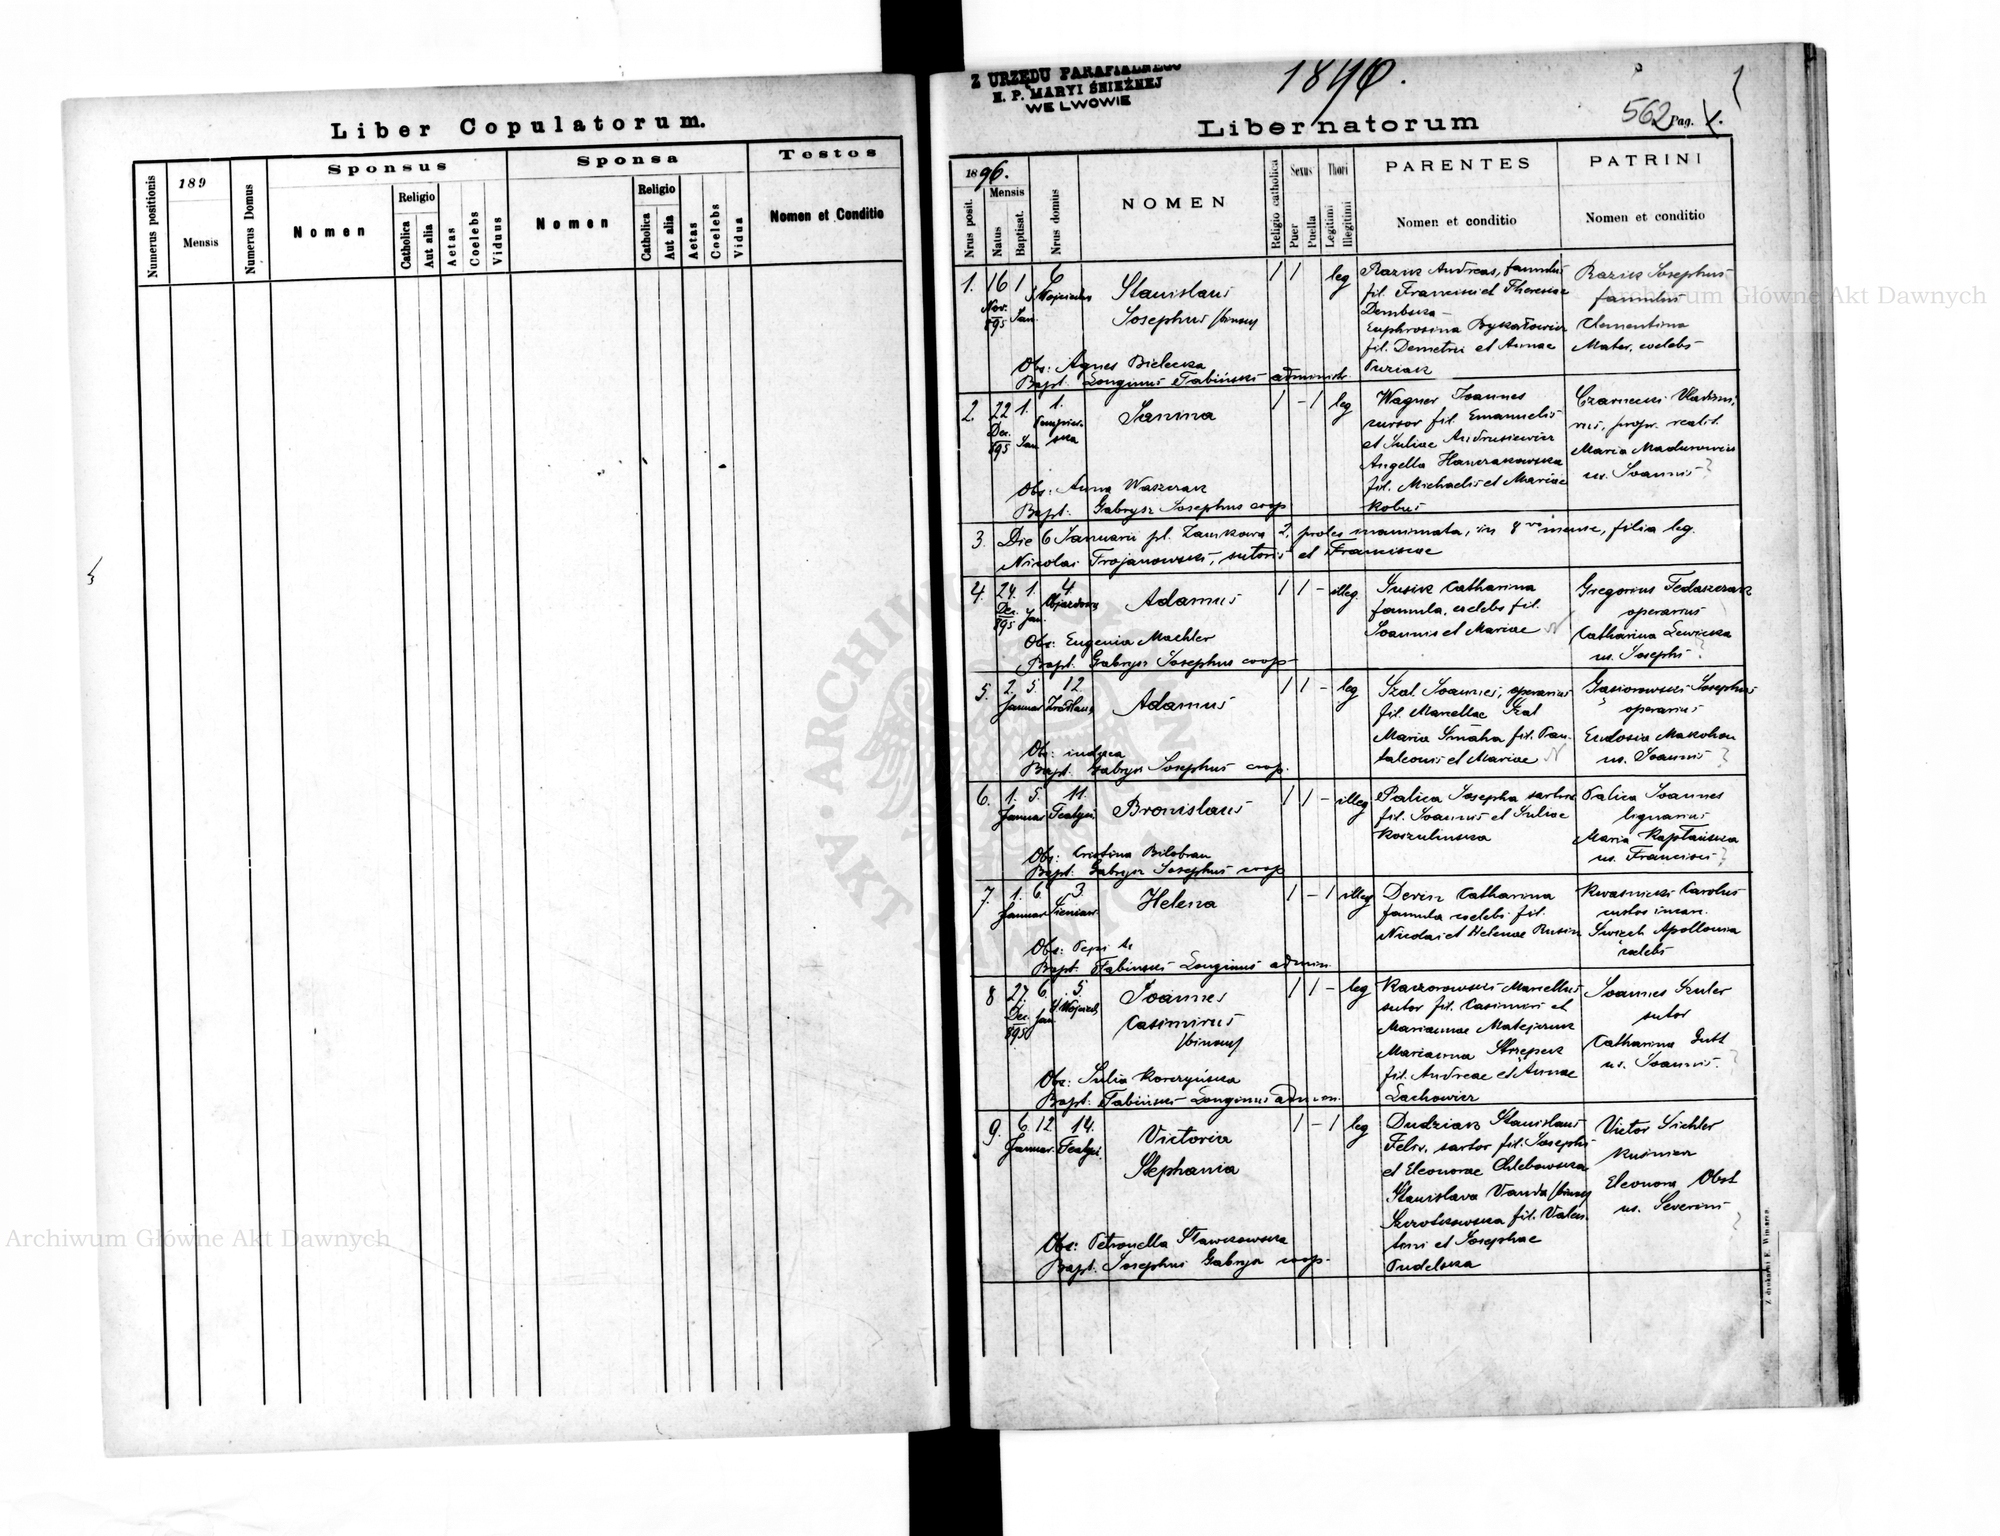 Liber Copulatorum.
Numerus positionis
189
Mensis
Numerus Domus
Sponsus
Nomen
Religio
Catholica
Aut alia
Aetas
Coelebs
Viduus
Sponsa
Nomen
Religio
Catholica
Aut alia
Aetas
Coelebs
Vidua
Testes
Nomen et Conditio
Z URZĘDU PARAFIALNEGO
N. P. MARYI ŚNIEŻNEJ
WE LWOWIE
1896.
1
562 Pag. 1.
Liber natorum
Nrus posit.
1896.
Mensis
Natus
Baptisat.
Nrus domus
NOMEN
Religio catholica
Sexus
Puer
Puella
Thori
Legitimi
Illegitimi
PARENTES
Nomen et conditio
PATRINI
Nomen et conditio
1. 16 Nov. 895 1 Jan. 6 S. Wojciecha
Stanislaus
Josephus /binom/
1 1 leg
Razik Andreas, famulus
fil. Francisci et Theresiae
Dembska
Euphrosina
fil. Demetrii et Annae
Puziak
Razik Josephus
famulus
Clementina
Mater, coelebs
Obs: Agnes Bielecka
Bapt. Longinus Fabiński administr.
2. 22 Dec. 895 1. Jan 1.
Janina
1 - 1 leg
Wagner Joannes
cursor fil. Emanuelis
et Juliae Andrusiewicz
Angella Hanczakowska
fil. Michaelis et Mariae
Kobus
Czarnecki Vladimi-
rus, propr. realit.
Maria Madurowicz
ux. Joannis
Obs: Anna Waszczak
Bapt. Gabrysz Josephus coop
3. Die 6 Januarii pl. Zamkowa 2, proles inanimata, in 8vo mense, filia leg.
Nicolai Trojanowski, sutoris et Franciscae
4. 24. Dec. 895 1. Jan. 4. Objazdowa
Adamus
1 1 - illeg.
Jusik Catharina
famula, coelebs fil.
Joannis et Mariae
Gregorius Fedaszczak
operarius
Catharina Lewicka
ux. Josephi
Obs: Eugenia Machler
Bapt. Gabrysz Josephus coop
5. 2. 5. Januar 12.
Adamus
1 1 - leg
Szal Joannes, operarius
fil. Marcellae Szal
Maria Smaha fil. Pan-
taleonis et Mariae
Gasiorowski Josephus
operarius
Eudosia Makohon
ux. Joannis
Obs:
Bapt. Gabrysz Josephus coop.
6. 1. 5. Januar 11.
Bronislaus
1 1 - illeg
Palica Josepha sartrix
fil. Joannis et Juliae
Koszulinska
Palica Joannes
lignarius
Maria Kaplańska
ux. Francisci
Obs: Cristina Bilobran
Bapt. Gabrysz Josephus coop
7. 1. 6. Januar 3
Helena
1 - 1 illeg
Catharina
famula coelebs fil.
Nicolai et Helenae Rusin
Kwasnicki Carolus
custos incarc.
Swiech Apollonia
coelebs
Obs:
Bapt. Fabinski Longinus admin.
8 27. Dec. 895 6. Jan. 5. S. Wojciech
Joannes
Casimirus
/binom/
1 1 - leg
Kaczorowski Marcellus
sutor fil. Casimiri et
Mariannae Matejczuk
Marianna Strzępek
fil. Andreae et Annae
Lachowicz
Joannes Szuler
sutor
Catharina Gutt
ux. Joannis
Obs: Julia Korczyńska
Bapt. Fabiński Longinus admin.
9. 6. 12 Januar. 14.
Victoria
Stephania
1 - 1 leg
Dudziak Stanislaus
Felix, sartor fil. Josephi
et Eleonorae Chlebowska
Stanislava Vanda /binom/
fil. Valen-
tini et Josephae
Pudelska
Victor Sichler
Kuśnierz
Eleonora Obst
ux. Severini
Obs: Petronella Sławczowska
Bapt. Josephus Gabrysz coop.
Z drukarni E. Winiarza.
Archiwum Główne Akt Dawnych
Archiwum Główne Akt Dawnych